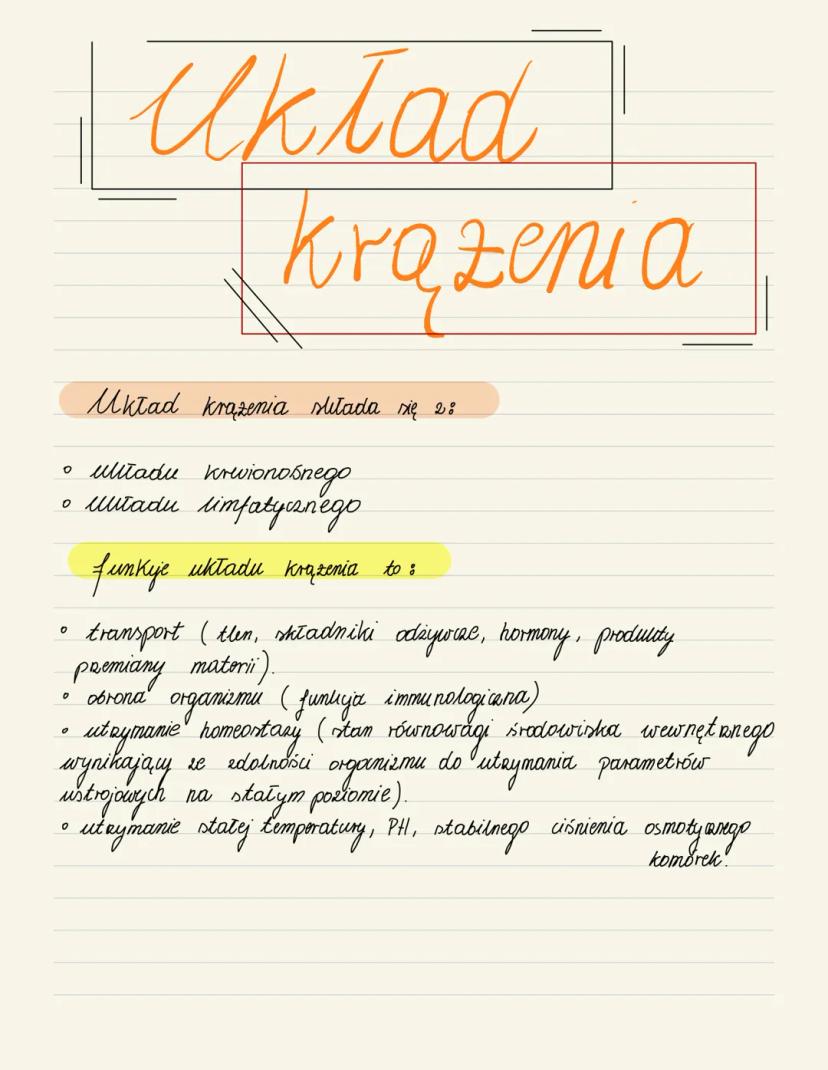 Układ
krążenia
Układ krążenia składa się z:
◦ układu krwionośnego
◦ układu limfatycznego
funkcje układu krążenia to:
◦ transport (tlen, składniki odżywcze, hormony, produkty
przemiany materii).
◦ obrona organizmu (funkcja immunologiczna)
◦ utrzymanie homeostazy (stan równowagi środowiska wewnętrznego
wynikający ze zdolności organizmu do utrzymania parametrów
ustrojowych na stałym poziomie).
◦ utrzymanie stałej temperatury, PH, stabilnego ciśnienia osmotycznego
komórek.